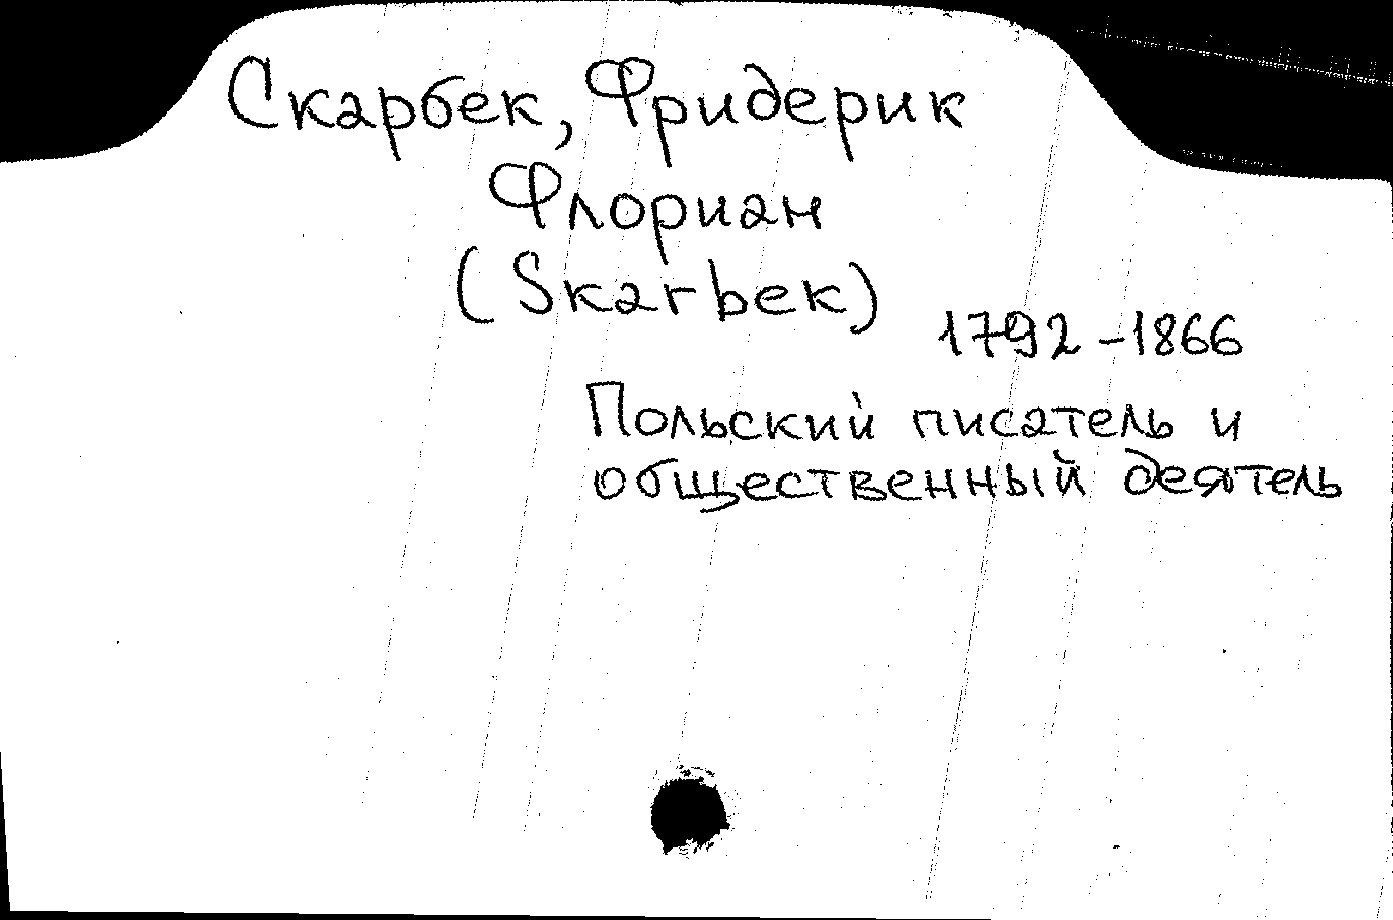 Скарбек, Фридерик
Флориан
(Skarbek)
1792-1866
Польский писатель и
общественный деятель